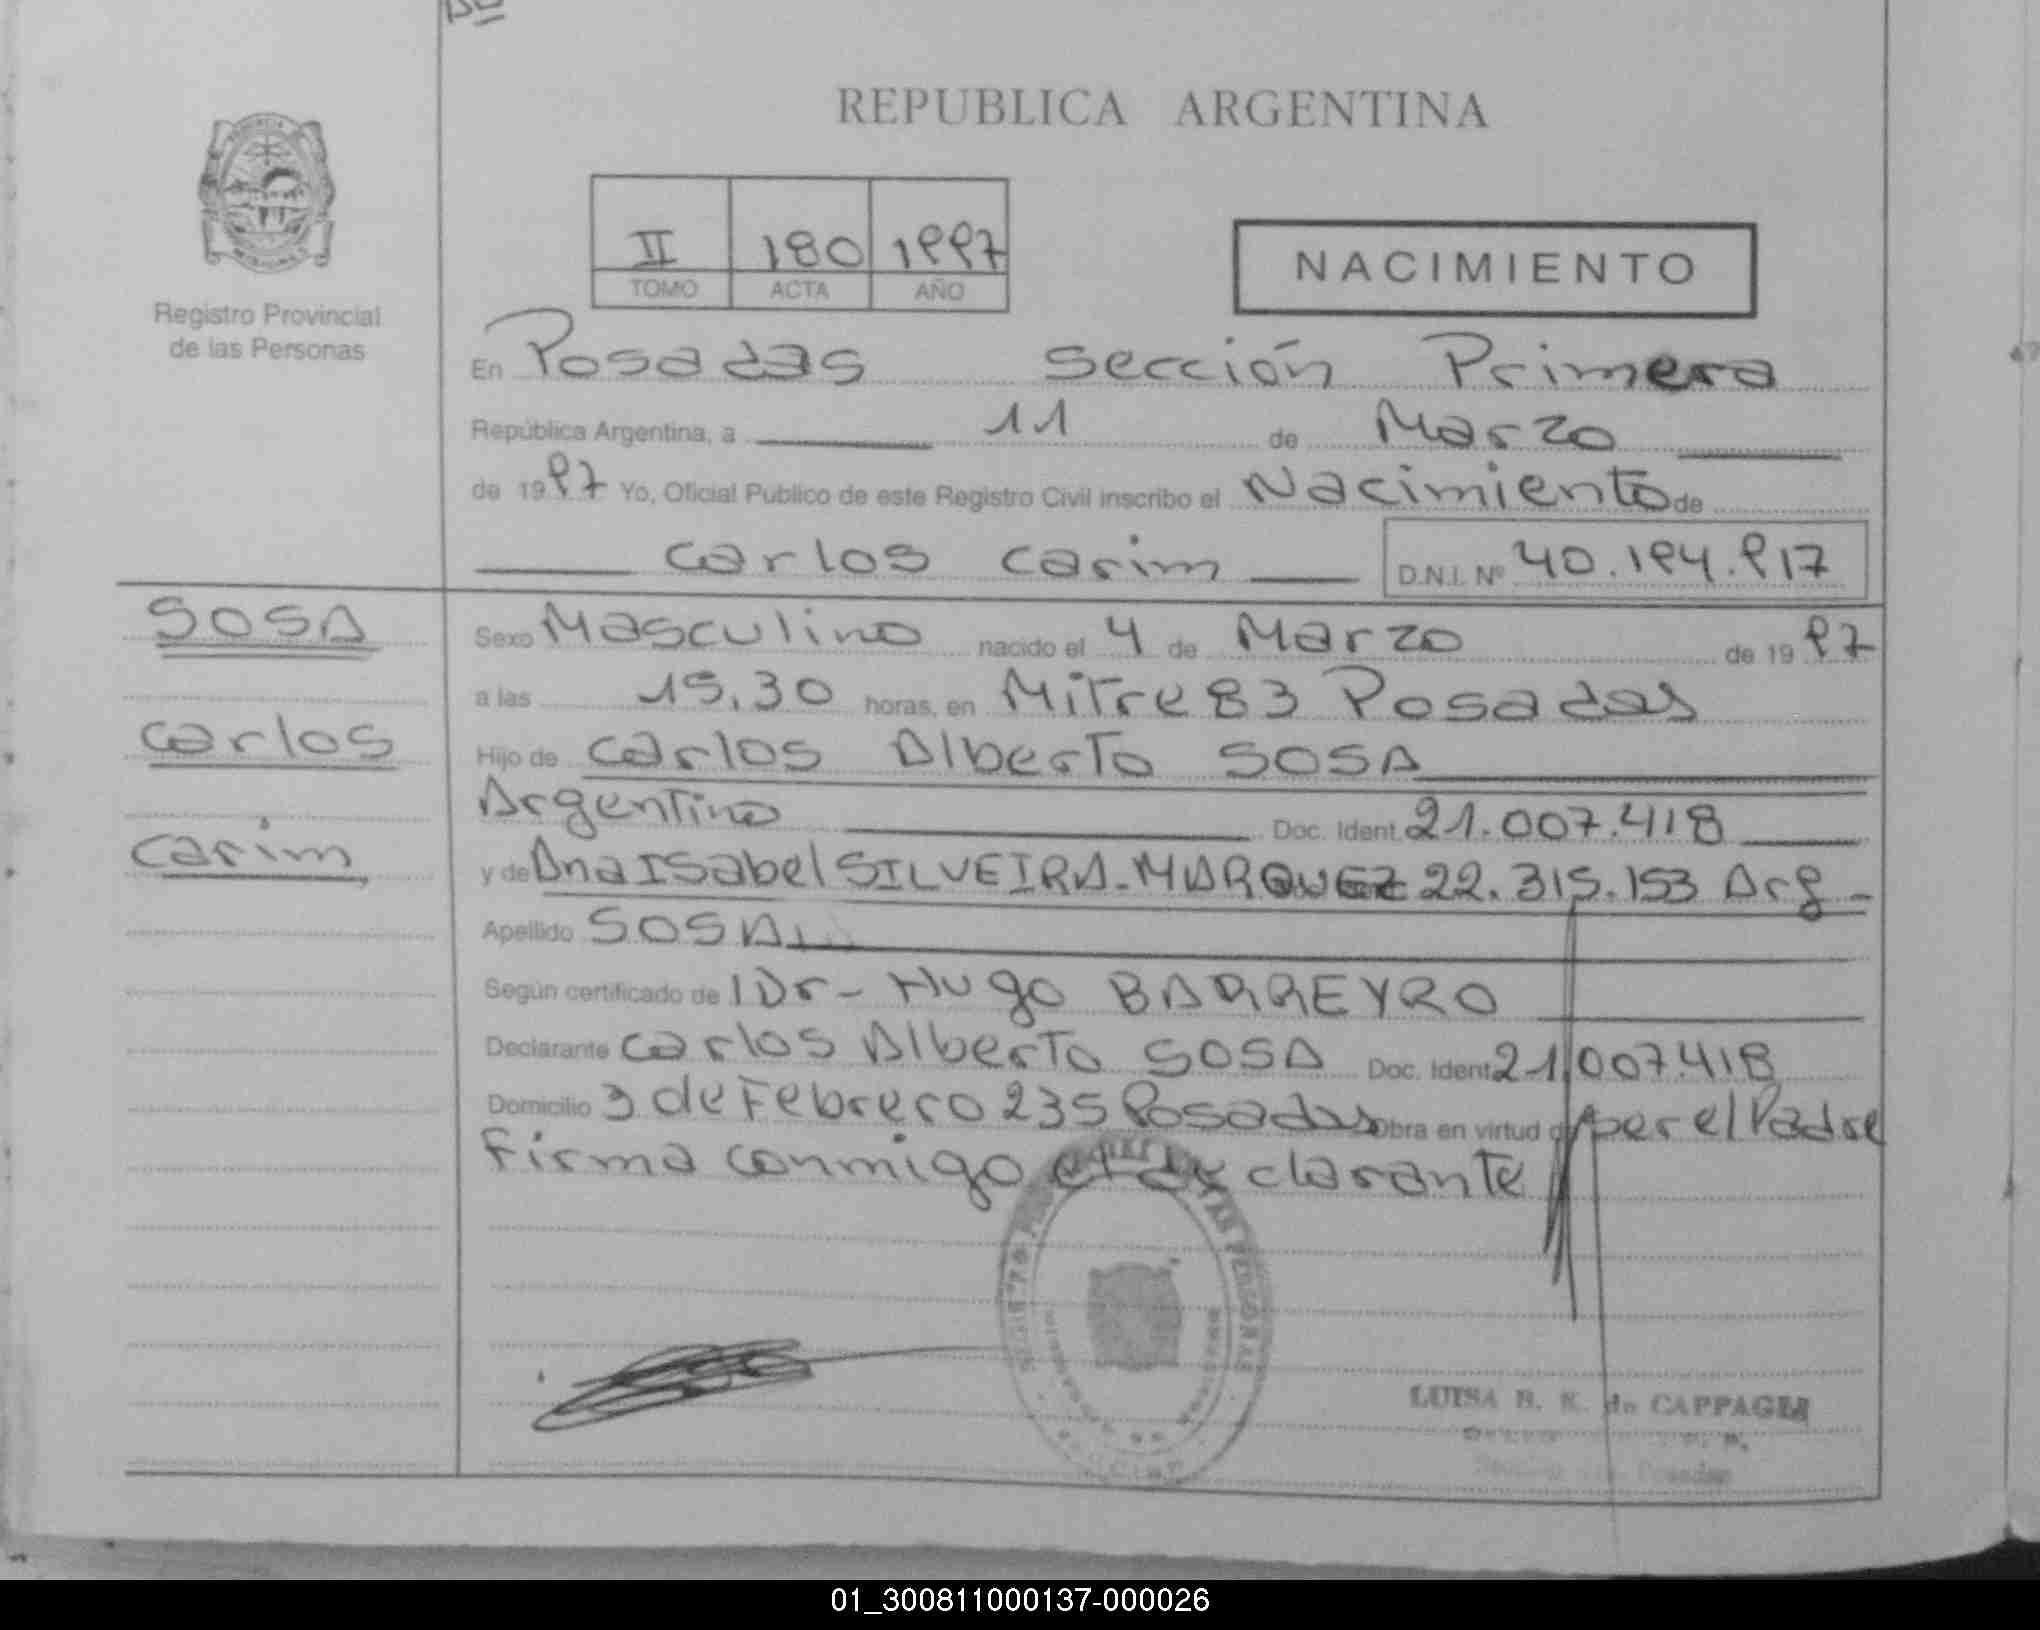 REPUBLICA ARGENTINA
Registro Provincial
de las Personas
II 180 1997
TOMO ACTA AÑO
NACIMIENTO
En Posadas Sección Primera
República Argentina, a 11 de Marzo
de 1997 Yo, Oficial Publico de este Registro Civil inscribo el Nacimiento de
Carlos Carim D.N.I. Nº 40.194.917
SOSA
Carlos
Carim
Sexo Masculino nacido el 4 de Marzo de 1997
a las 15.30 horas, en Mitre 83 Posadas
Hijo de Carlos Alberto SOSA
Argentino Doc. Ident. 21.007.418
y de Ana Isabel SILVEIRA-MARQUEZ 22.315.153 Arg-
Apellido SOSA
Según certificado de Dr- Hugo BARREYRO
Declarante Carlos Alberto SOSA Doc. Ident 21.007.418
Domicilio 3 de Febrero 235 Posadas Obra en virtud de ser el Padre
Firma conmigo el declarante
LUISA B. K. de CAPPAGLI
Posadas
01_300811000137-000026